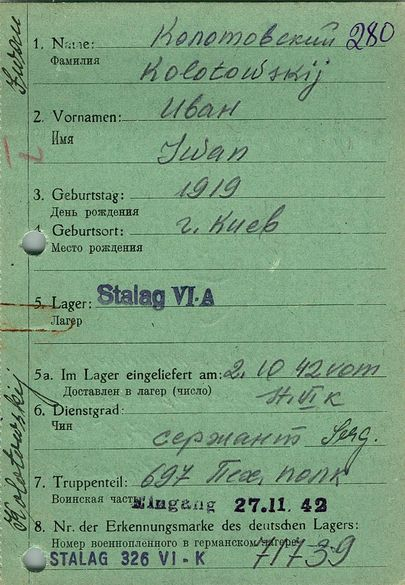 1. Name: Колотовский 280
Фамилия
Kolotowskij
2. Vornamen: Иван
Имя
Iwan
3. Geburtstag: 1919
День рождения
4. Geburtsort: г. Киев
Место рождения
5. Lager: Stalag VI-A
Лагер
5a. Im Lager eingeliefert am: 2.10 42 vom
Доставлен в лагер (число)
VI K
6. Dienstgrad:
Чин
сержант Serg.
7. Truppenteil: 697 Пех. полк
Воинская часть
Eingang 27.11. 42
8. Nr. der Erkennungsmarke des deutschen Lagers:
Номер военнопленного в германском лагере
STALAG 326 VI-K 71739
Kolotowskij
Iwan